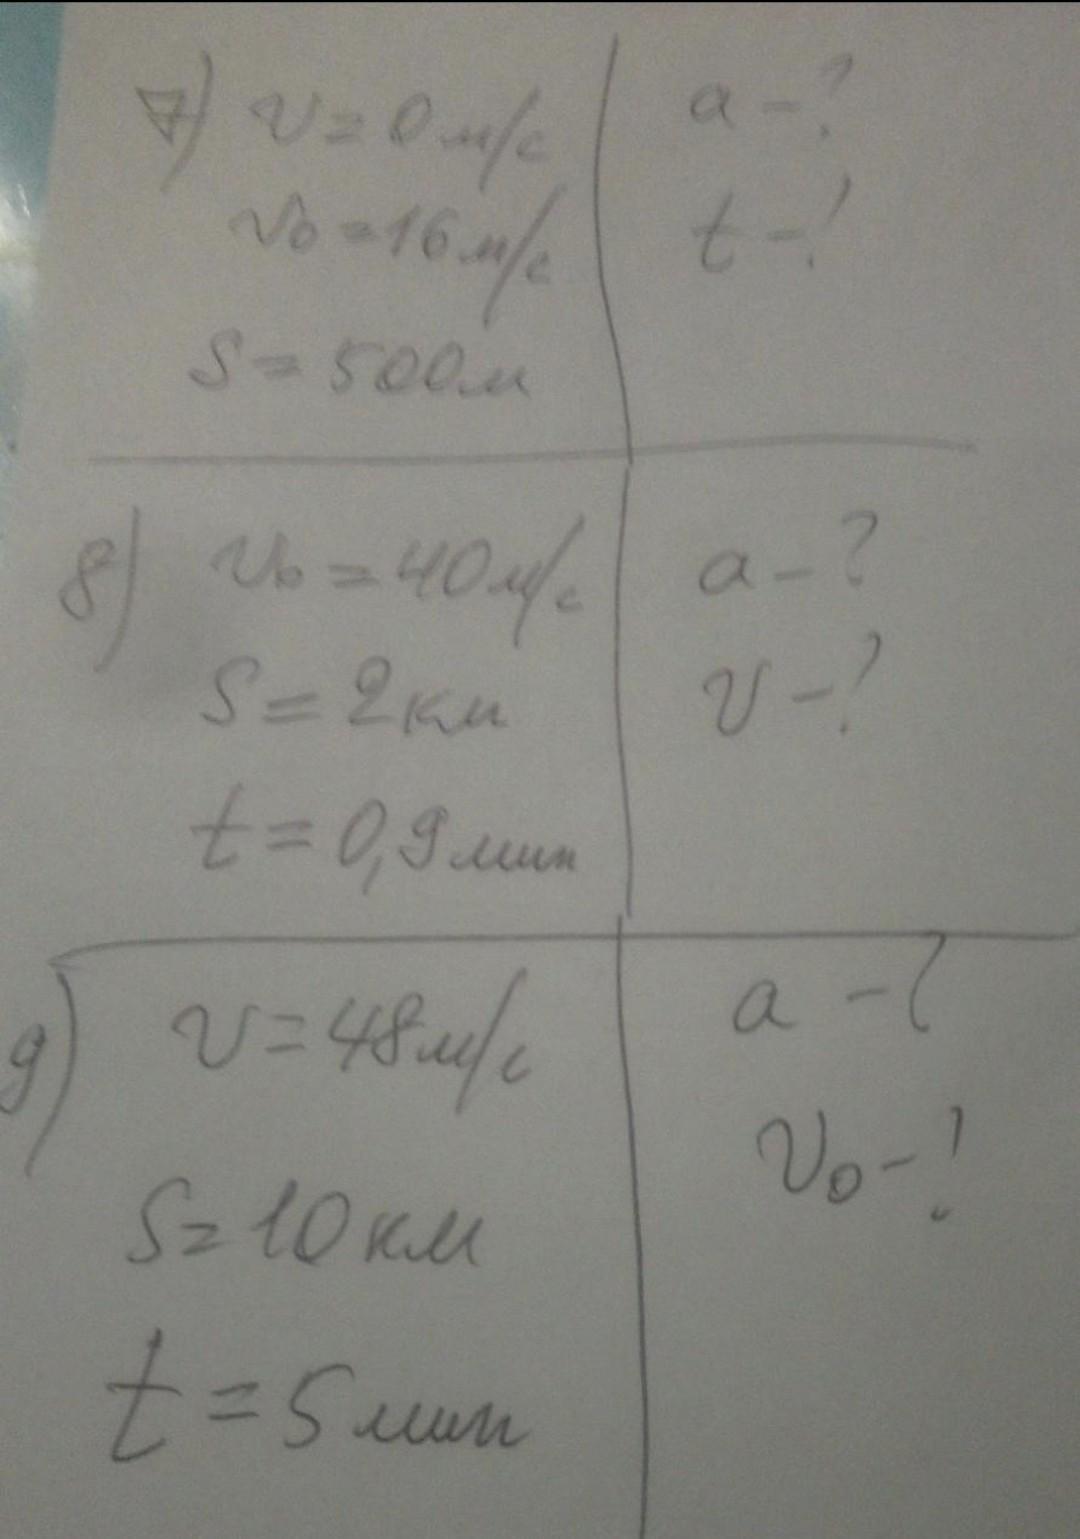 7) v = 0 м/с
a - ?
v₀ = 16 м/с
t - ?
S = 500 м
8) v₀ = 40 м/с
a - ?
S = 2 км
v - ?
t = 0,9 мин
9) v = 48 м/с
a - ?
v₀ - ?
S = 10 км
t = 5 мин